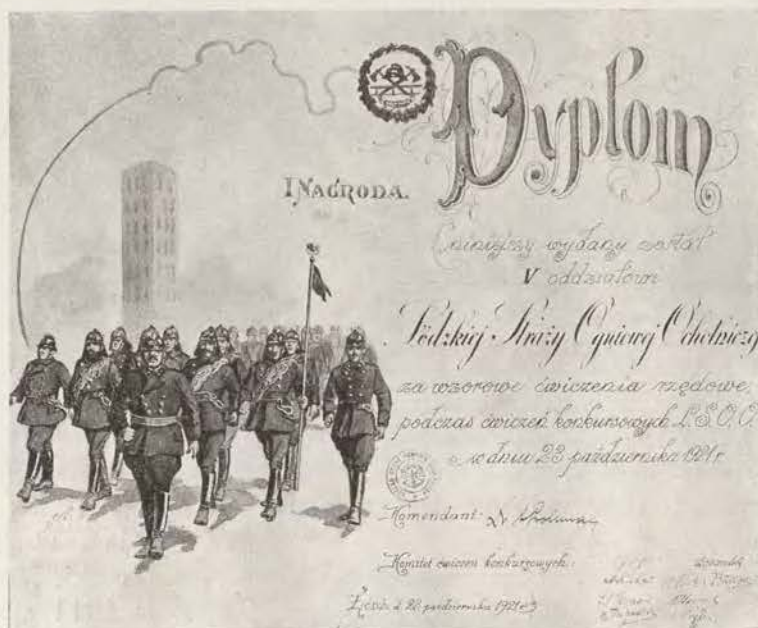 Dyplom
I NAGRODA.
niniejszy wydany został
V oddziałowi
Łódzkiej Straży Ogniowej Ochotniczej
za wzorowe ćwiczenia rzędowe,
podczas ćwiczeń konkursowych Ł.S.O.O.
w dniu 23 października 1921 r.
Komendant:
Komitet ćwiczeń konkursowych:
Łódź, d. października 1921 r.